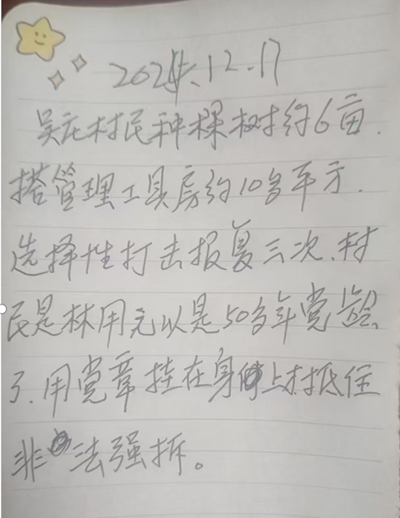 2024.12.17
吴庄村民种棵树约6亩.
搭管理工具房约10多平方.
选择性打击报复三次.村
民是林用元以是50多年党龄
了.用党章挂在身上才抵住
非法强拆。